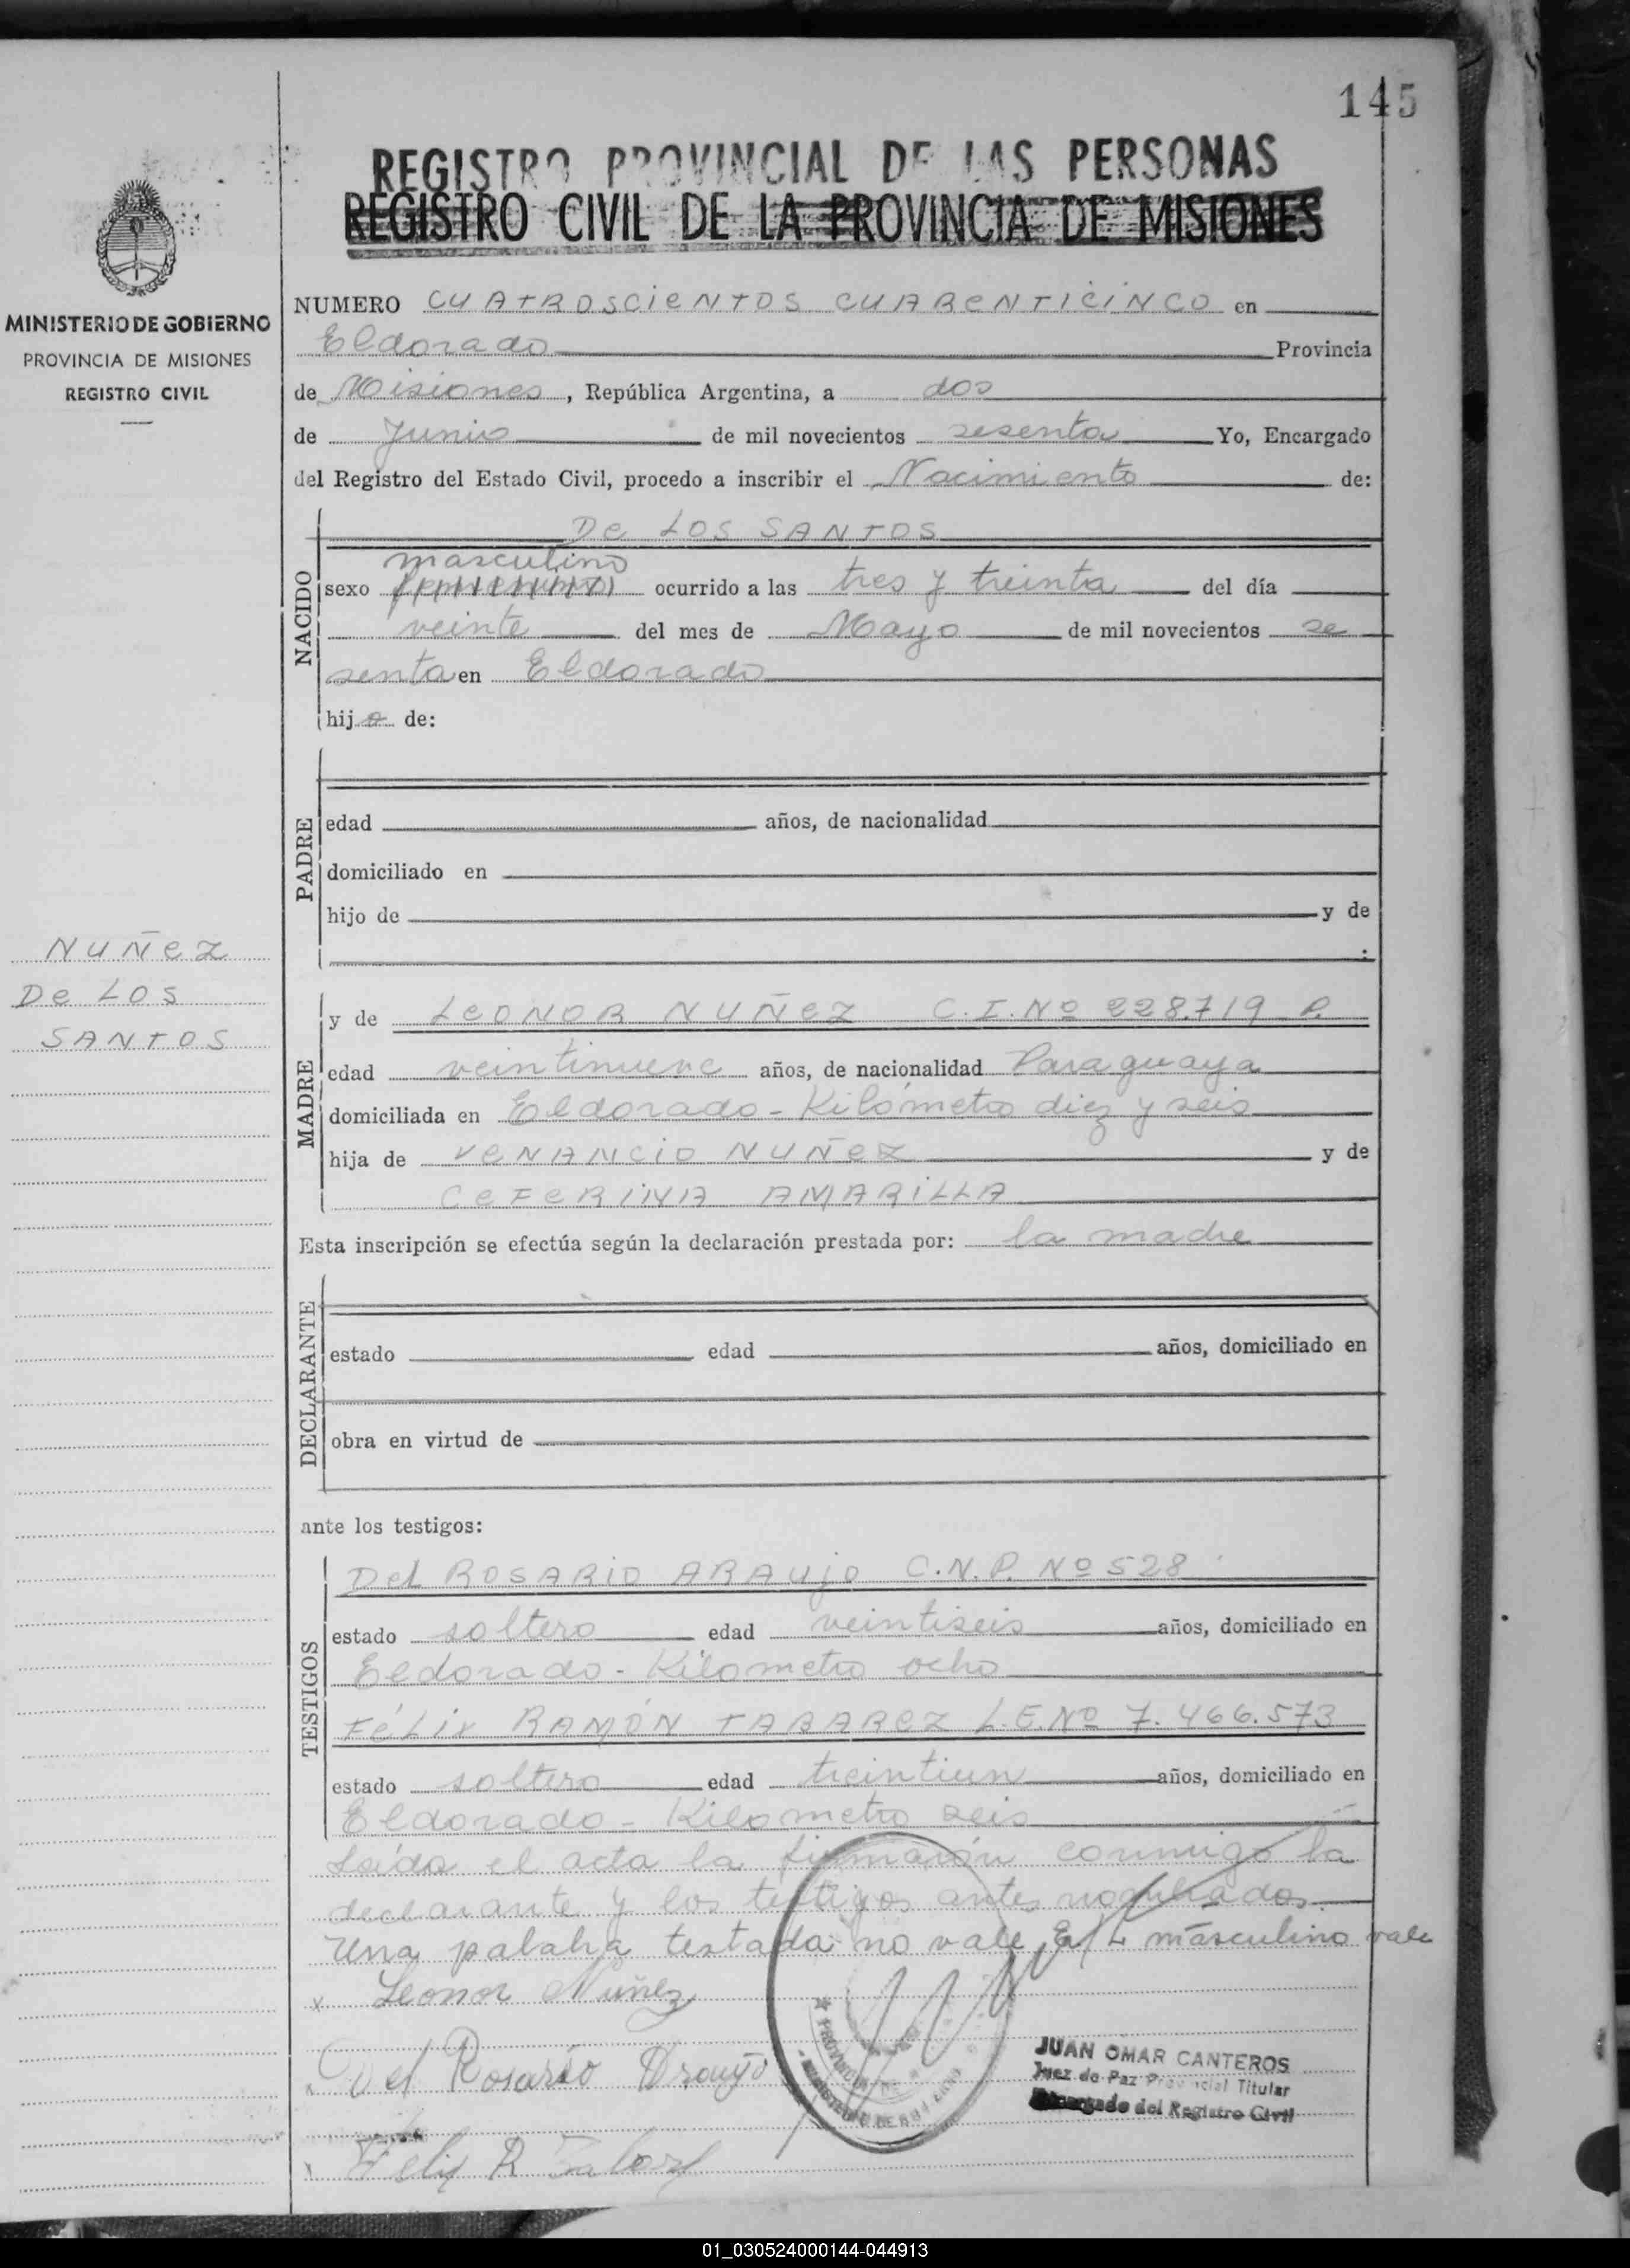 145
REGISTRO PROVINCIAL DE LAS PERSONAS
REGISTRO CIVIL DE LA PROVINCIA DE MISIONES
MINISTERIO DE GOBIERNO
PROVINCIA DE MISIONES
REGISTRO CIVIL
NUMERO CUATROSCIENTOS CUARENTICINCO en
Eldorado Provincia
de Misiones, República Argentina, a dos
de Junio de mil novecientos sesenta Yo, Encargado
del Registro del Estado Civil, procedo a inscribir el Nacimiento de:
NACIDO
De LOS SANTOS
masculino
sexo femenino ocurrido a las tres y treinta del día
veinte del mes de Mayo de mil novecientos se
senta en Eldorado
hijo de:
PADRE
edad años, de nacionalidad
domiciliado en
hijo de y de
NUÑEZ
De LOS
SANTOS
MADRE
y de LEONOR NUÑEZ C.I. Nº 228.719 P.
edad veintinueve años, de nacionalidad Paraguaya
domiciliada en Eldorado - Kilómetro diez y seis
hija de VENANCIO NUÑEZ y de
CEFERINA AMARILLA
Esta inscripción se efectúa según la declaración prestada por: la madre
DECLARANTE
estado edad años, domiciliado en
obra en virtud de
ante los testigos:
TESTIGOS
Del ROSARIO ARAUJO C.N.P. Nº 528
estado soltero edad veintiseis años, domiciliado en
Eldorado - Kilometro ocho
FÉLIX RAMÓN TABAREZ L.E. Nº 7.466.573
estado soltero edad treintiun años, domiciliado en
Eldorado - Kilometro seis
Leída el acta la firmarón conmigo la
declarante y los testigos antes nombrados.
Una palabra testada no vale E/L masculino vale
x Leonor Nuñez
x Del Rosario Araujo
x Felix R Tabarez
JUAN OMAR CANTEROS
Juez de Paz Provincial Titular
Encargado del Registro Civil
01_030524000144-044913